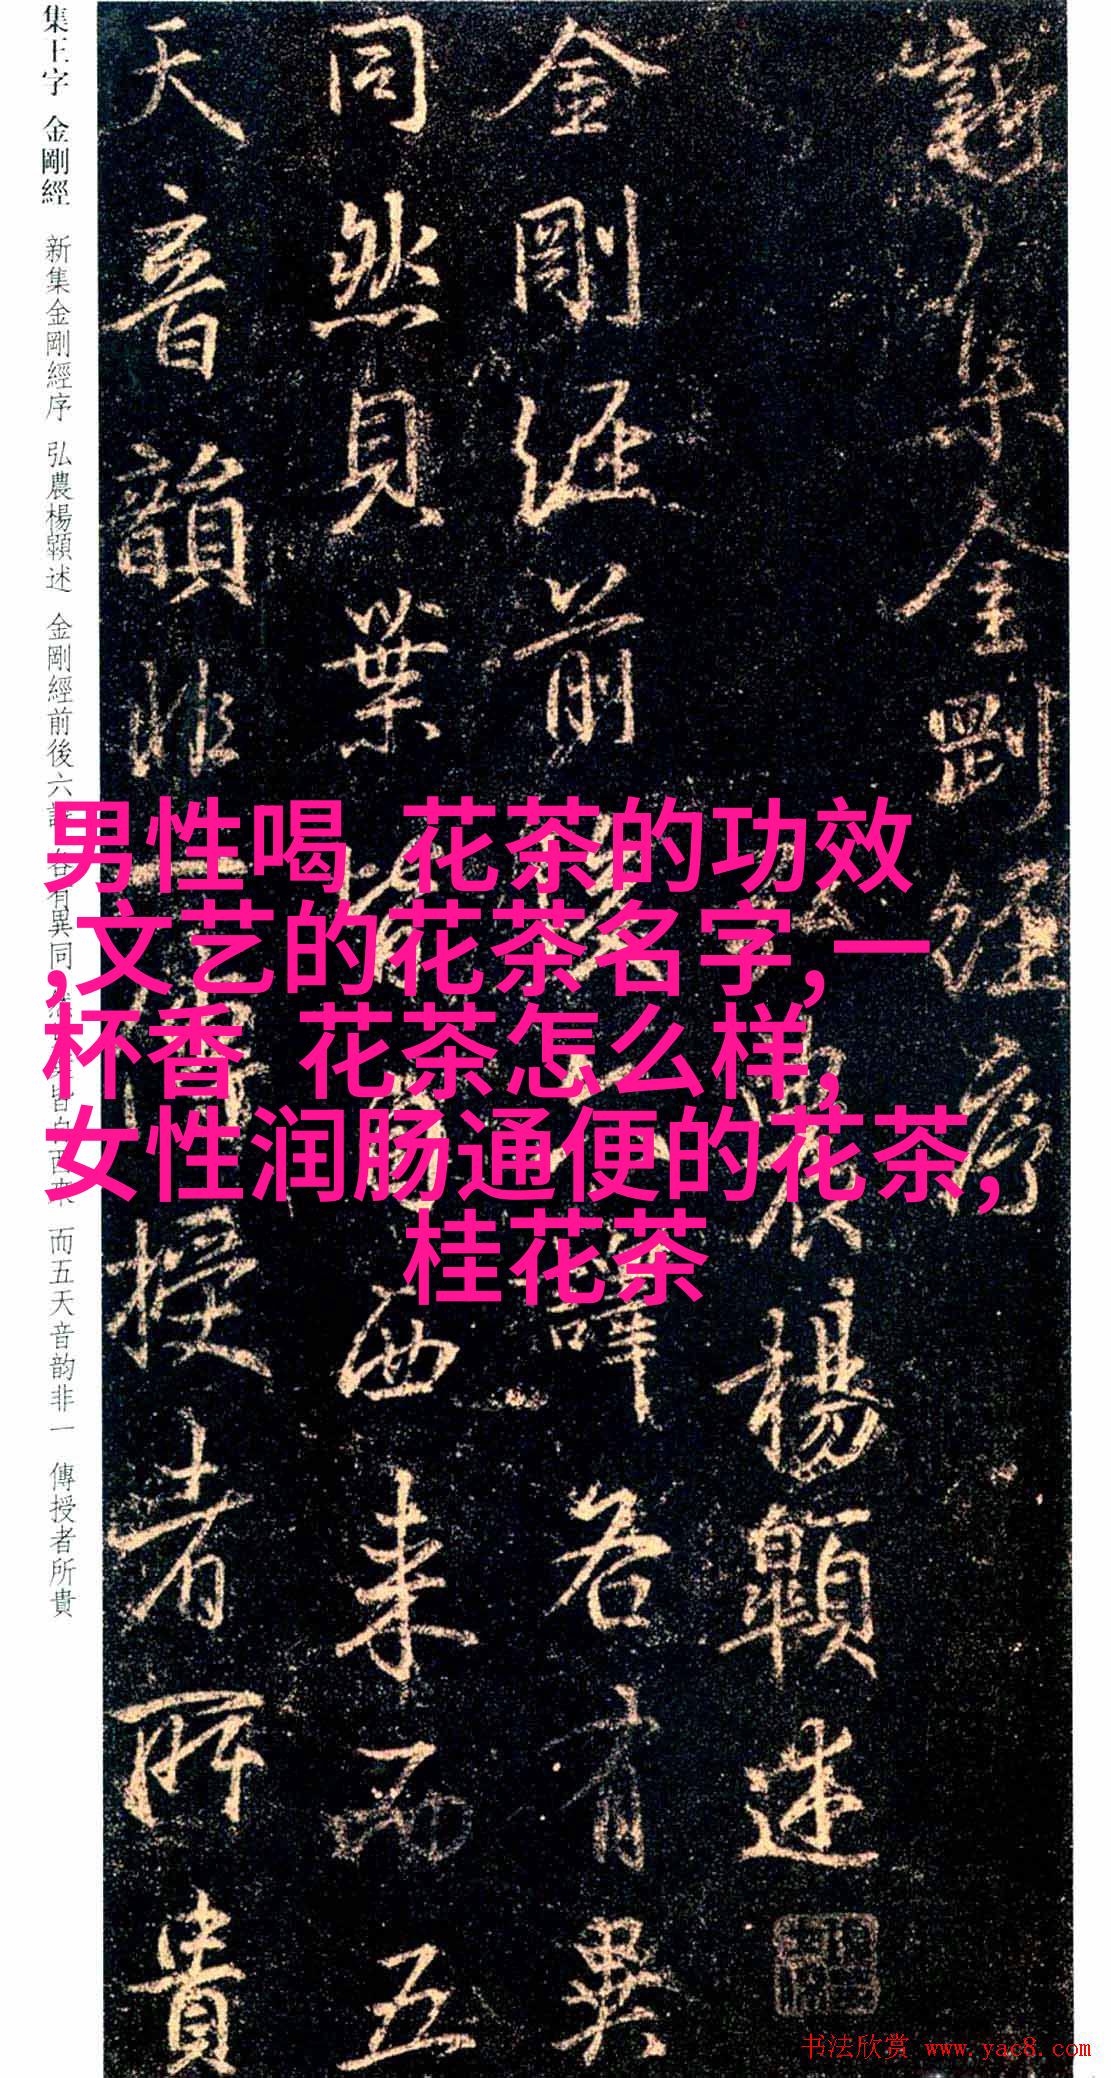 新集金剛經序
農楊顗述
金剛經前
譯各有異
同然貝葉
皆自西来而五
天音韻非一傳授者所貴
集王字 金剛經 新集金剛經序 弘農楊顗述 金剛經前後六譯 各有異同 然貝葉皆自西來 而五天音韵非一 傳授者所貴
男性喝 花茶的功效
,文艺的花茶名字,一
杯香 花茶怎么样,
女性润肠通便的花茶,
桂花茶
书法欣赏 www.yac8.com